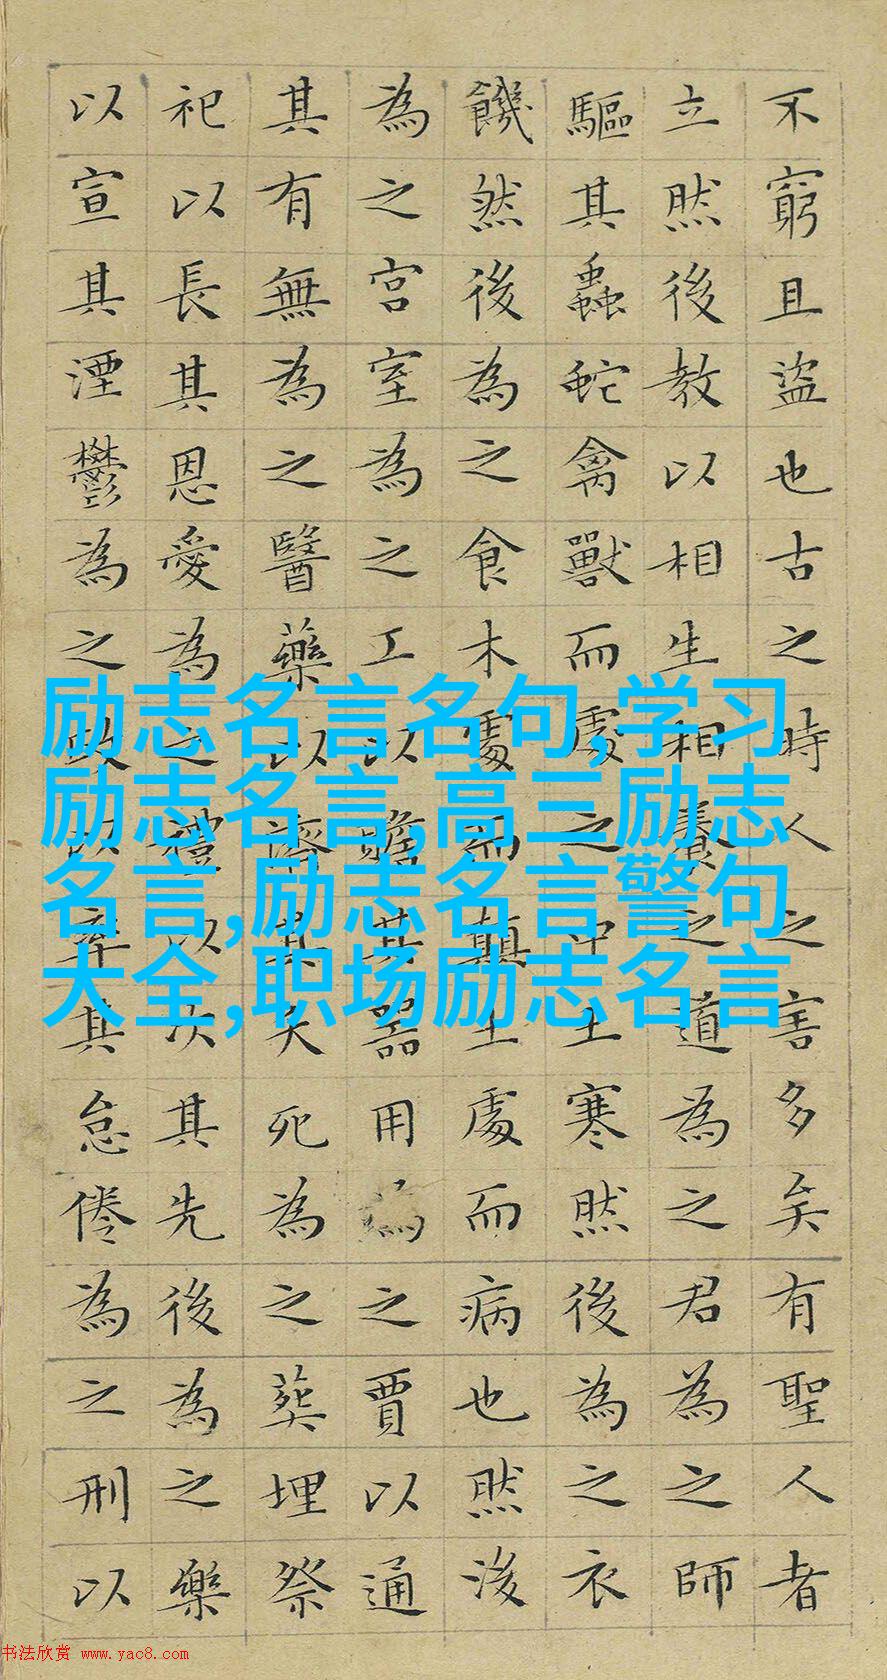 不窮且盜也古之時人之害多矣有聖人者
立然後教以相生相養之道為之君為之師
驅其蟲蛇禽獸而處之中土寒然後為之衣
饑然後為之食木處而顛土處而病也然後
為之宮室為之工以贍其器用為之賈以通
其有無為之醫藥以濟其夭死為之葬埋祭
祀以長其恩愛為之禮以次其先後為之樂
以宣其湮鬱為之政以率其怠倦為之刑以
励志名言名句,学习
励志名言,高三励志
名言,励志名言警句
大全,职场励志名言
书法欣赏 www.yac8.com